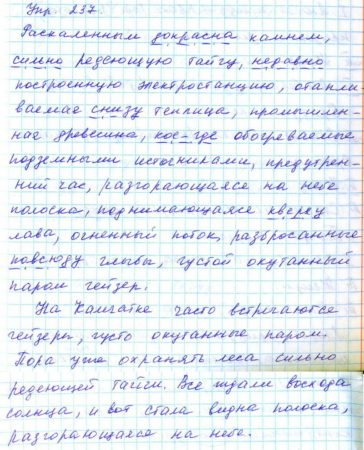 Упр. 237.
Раскаленным докрасна камнем,
сильно редеющую тайгу, недавно
построенную электростанцию, отапли-
ваемая снизу теплица, промышлен-
ная древесина, кое-где обогреваемые
подземными источниками, предутрен-
ний час, разгорающаяся на небе
полоска, поднимающаяся кверху
лава, огненный поток, разбросанные
повсюду глыбы, густой окутанный
паром гейзер.
На Камчатке часто встречаются
гейзеры, густо окутанные паром.
Пора уже охранять леса сильно
редеющей тайги. Все ждали восхода
солнца, и вот стала видна полоска,
разгорающаяся на небе.